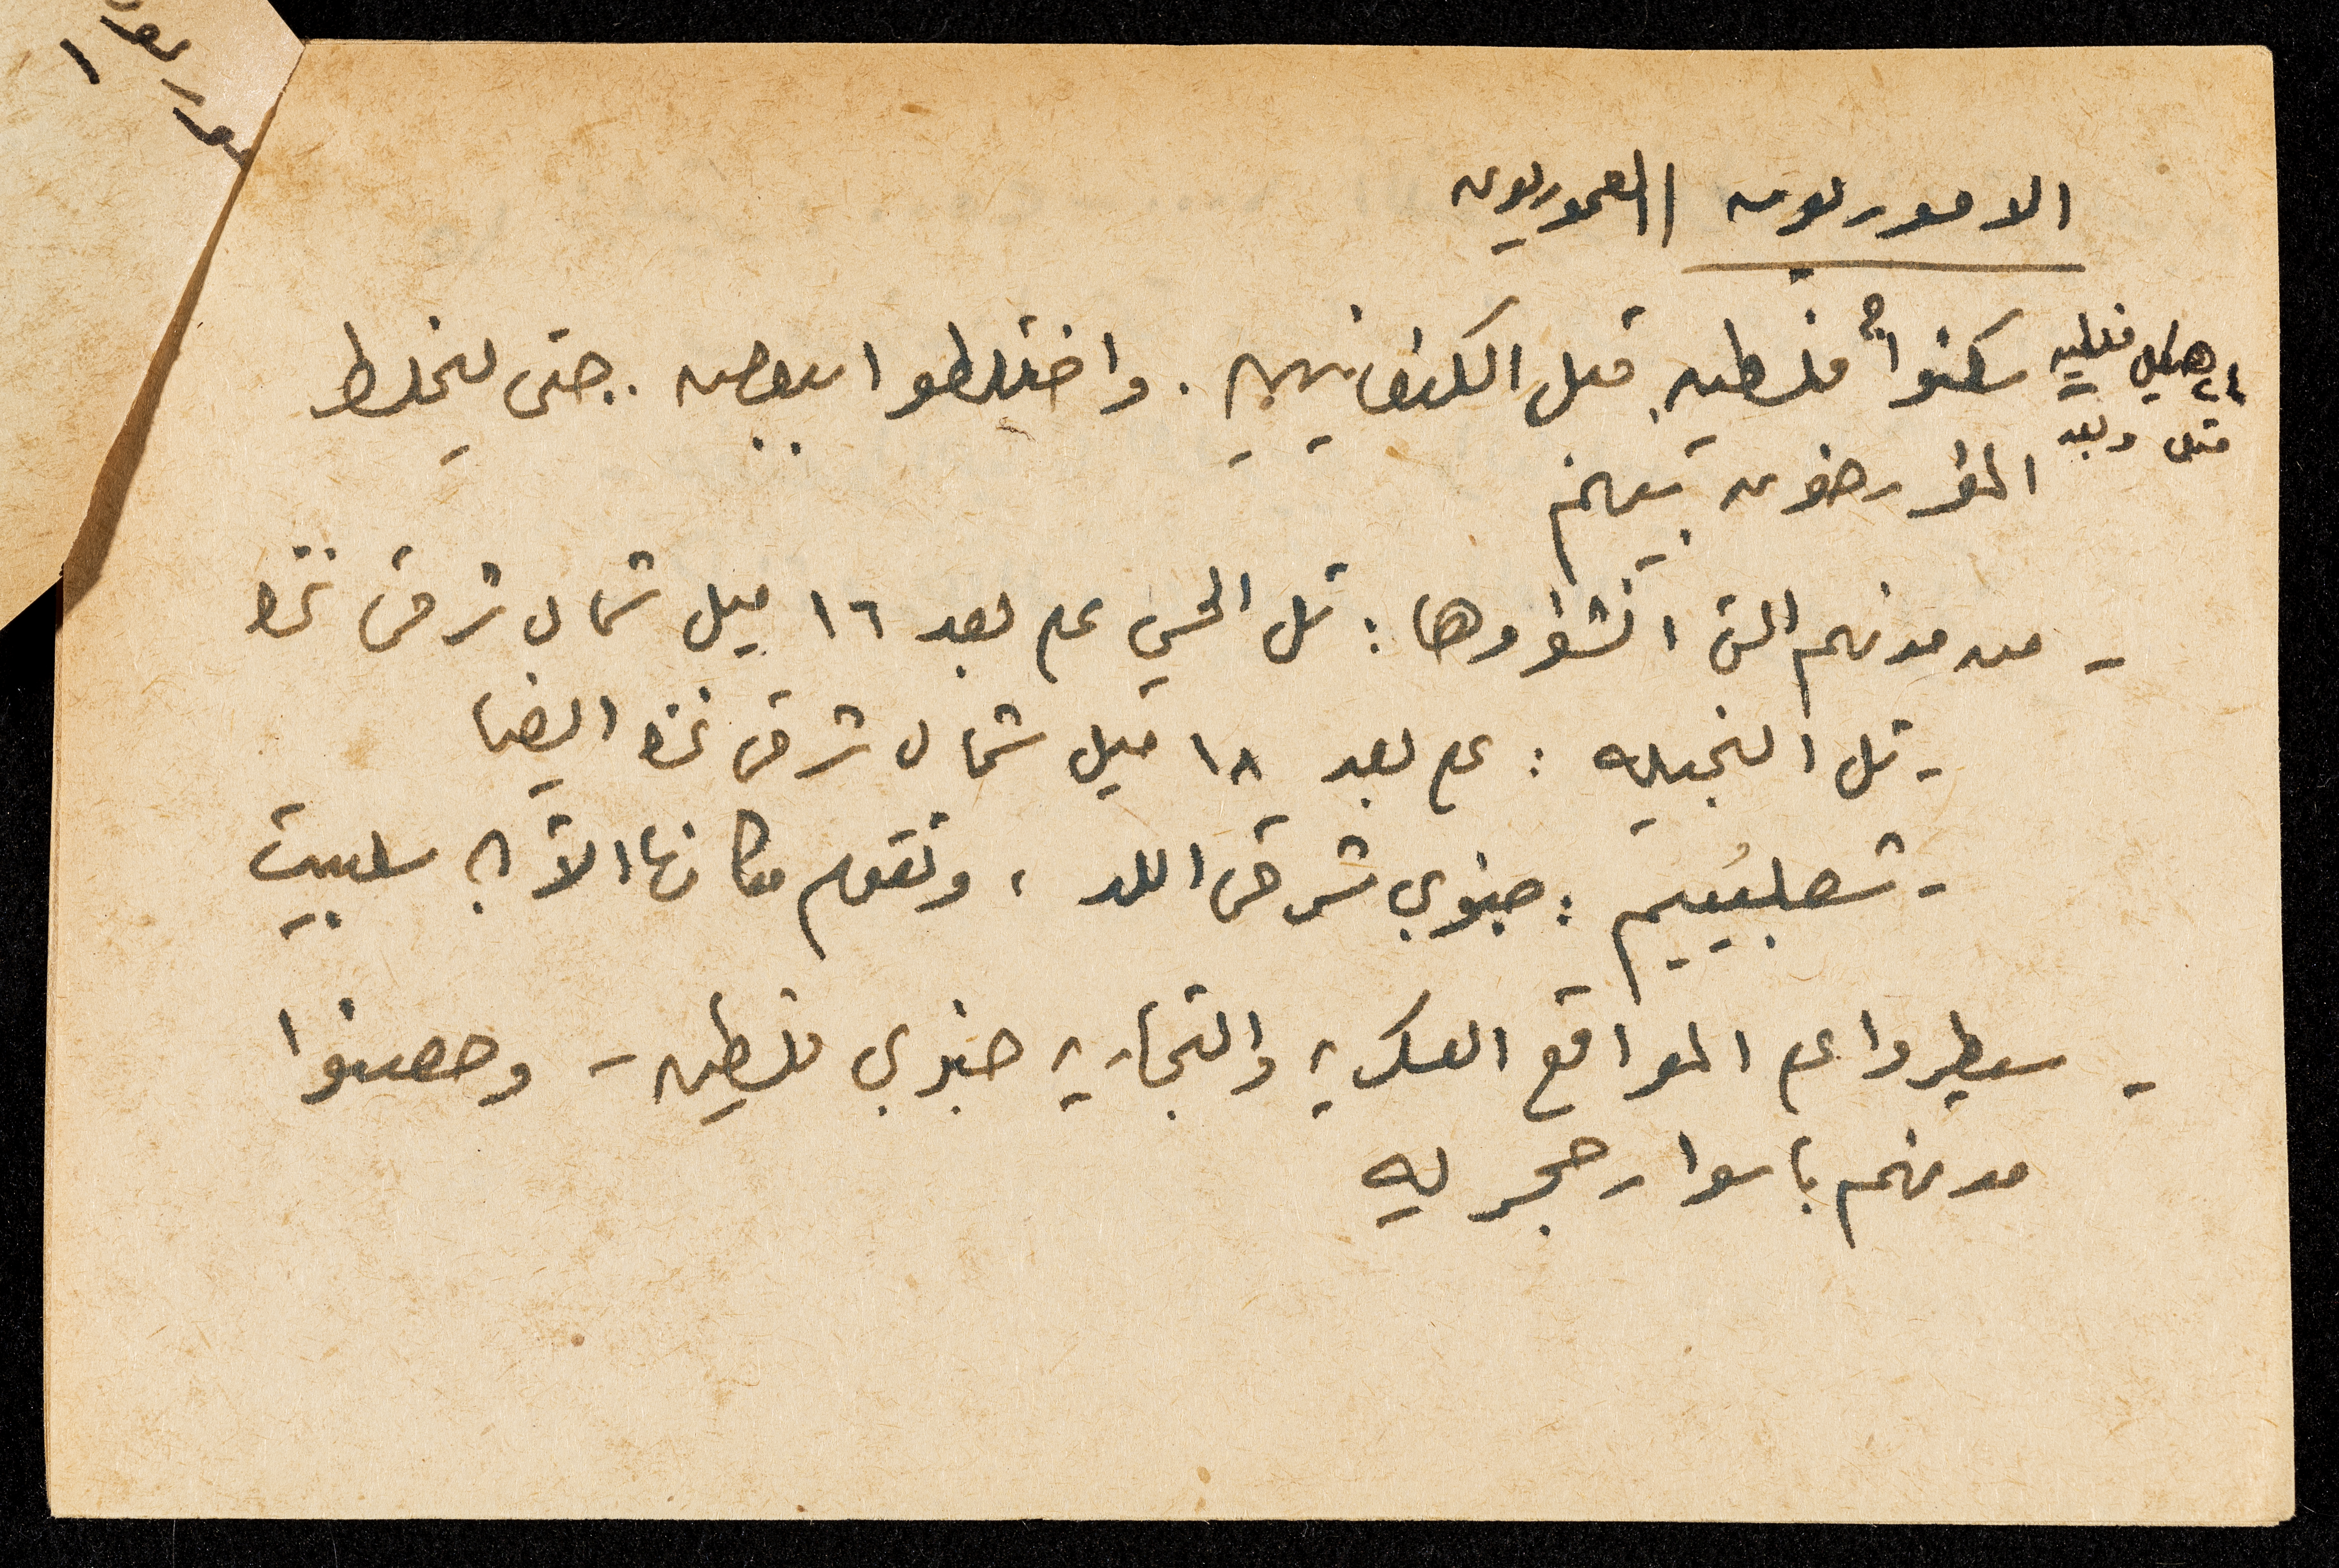 الاموريون || العموريون
سكنوا فلسطين قبل الكنعانيين . واختلطوا ببعض . حتى ليخلط
قبل وبعد
المؤرخون بينهم
- من مدنهم التي انشؤوها : تل الحسي على بعد ١٦ ميل شمال شرق غزة
- تل النجيله : على بعد ١٨ ميل شمال شرق غزة ايضا
- شعلبيم : جنوبي شرقي اللد ، وتقوم مكانها الآن سلبيت
- سيطروا على المواقع العسكرية والتجارية جنوبي فلسطين - وحصنوا
مدنهم باسوار حجريه